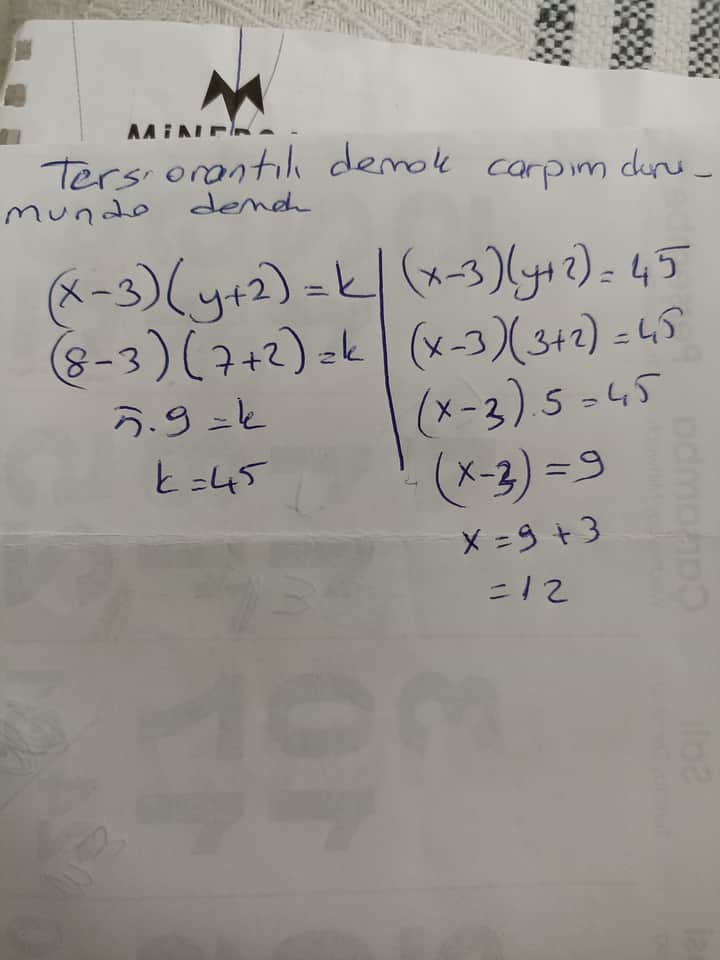 MİNERVA
Ters orantılı demek carpım duru-
munda demek
(x-3)(y+2)=k
(8-3)(7+2)=k
5.9=k
k=45
(x-3)(y+2)=45
(x-3)(3+2)=45
(x-3).5=45
(x-3)=9
x=9+3
=12
Çarşamba
Salı